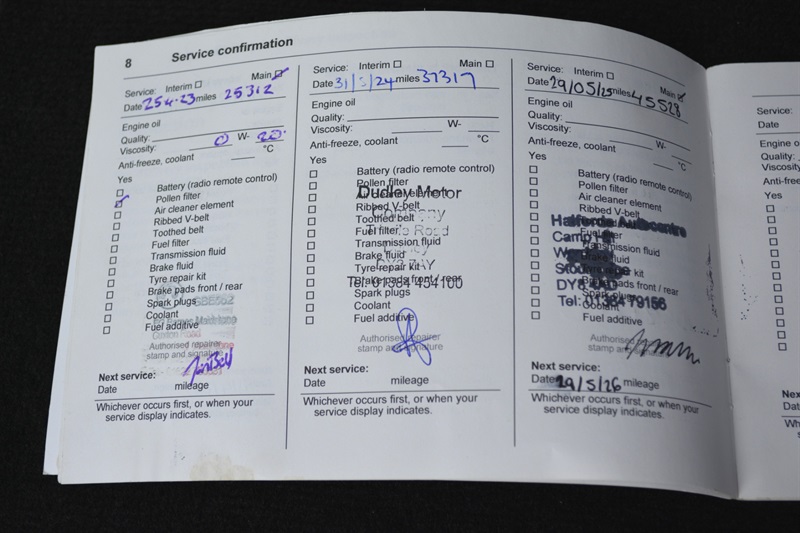 8 Service confirmation
Service: Interim ☐ Main ☑
Date 25.4.23 miles 25312
Engine oil
Quality:
Viscosity: 0 W- 20
Anti-freeze, coolant °C
Yes
☐ Battery (radio remote control)
☑ Pollen filter
☐ Air cleaner element
☐ Ribbed V-belt
☐ Toothed belt
☐ Fuel filter
☐ Transmission fluid
☐ Brake fluid
☐ Tyre repair kit
☐ Brake pads front / rear
☐ Spark plugs
☐ Coolant
☐ Fuel additive
Authorised repairer
stamp and signature
Next service:
Date mileage
Whichever occurs first, or when your
service display indicates.
Service: Interim ☐ Main ☐
Date 31/ /24 miles 37317
Engine oil
Quality:
Viscosity: W-
Anti-freeze, coolant °C
Yes
☐ Battery (radio remote control)
☐ Pollen filter
☐ Air cleaner element
☐ Ribbed V-belt
☐ Toothed belt
☐ Fuel filter
☐ Transmission fluid
☐ Brake fluid
☐ Tyre repair kit
☐ Brake pads front / rear
☐ Spark plugs
☐ Coolant
☐ Fuel additive
Dudley Motor
Company
Road
Dudley
Tel: 01384 454100
Authorised repairer
stamp and signature
Next service:
Date mileage
Whichever occurs first, or when your
service display indicates.
Service: Interim ☐ Main ☑
Date 29/05/25 miles 45528
Engine oil
Quality:
Viscosity: W-
Anti-freeze, coolant °C
Yes
☐ Battery (radio remote control)
☐ Pollen filter
☐ Air cleaner element
☐ Ribbed V-belt
☐
☐ Fuel filter
☐ Transmission fluid
☐ Brake fluid
☐ kit
☐ Brake pads front / rear
☐ Spark plugs
☐ Coolant
☐ Fuel additive
Halfords Autocentre
Camp Hill
Stourbridge
DY8
Tel: 01384 79156
Authorised
stamp
Next service:
Date 29/5/26 mileage
Whichever occurs first, or when your
service display indicates.
Service:
Date
Engine o
Quality:
Viscosity:
Anti-free
Yes
Nex
Dat
Wh